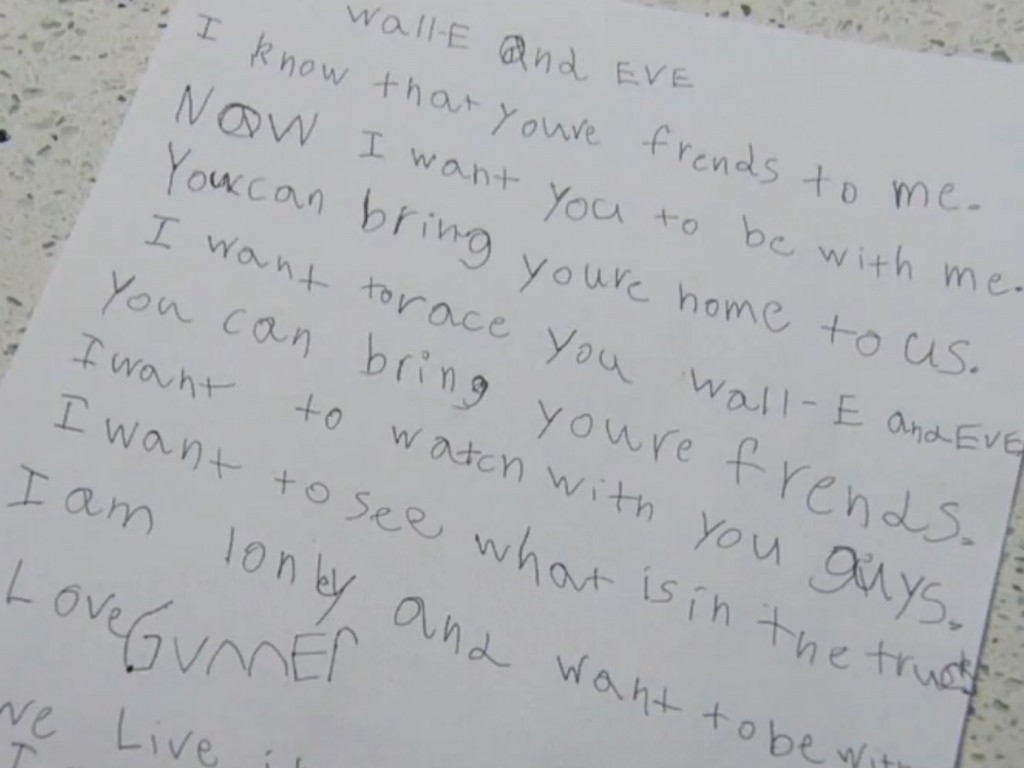 Wall-E and EVE
I know that youre frends to me.
NOW I want you to be with me.
You can bring youre home to us.
I want to race you Wall-E and EVE
You can bring youre frends.
I want to watch with you guys.
I want to see what is in the truck
I am lonly and want to be with
Love Gunner
we Live
I